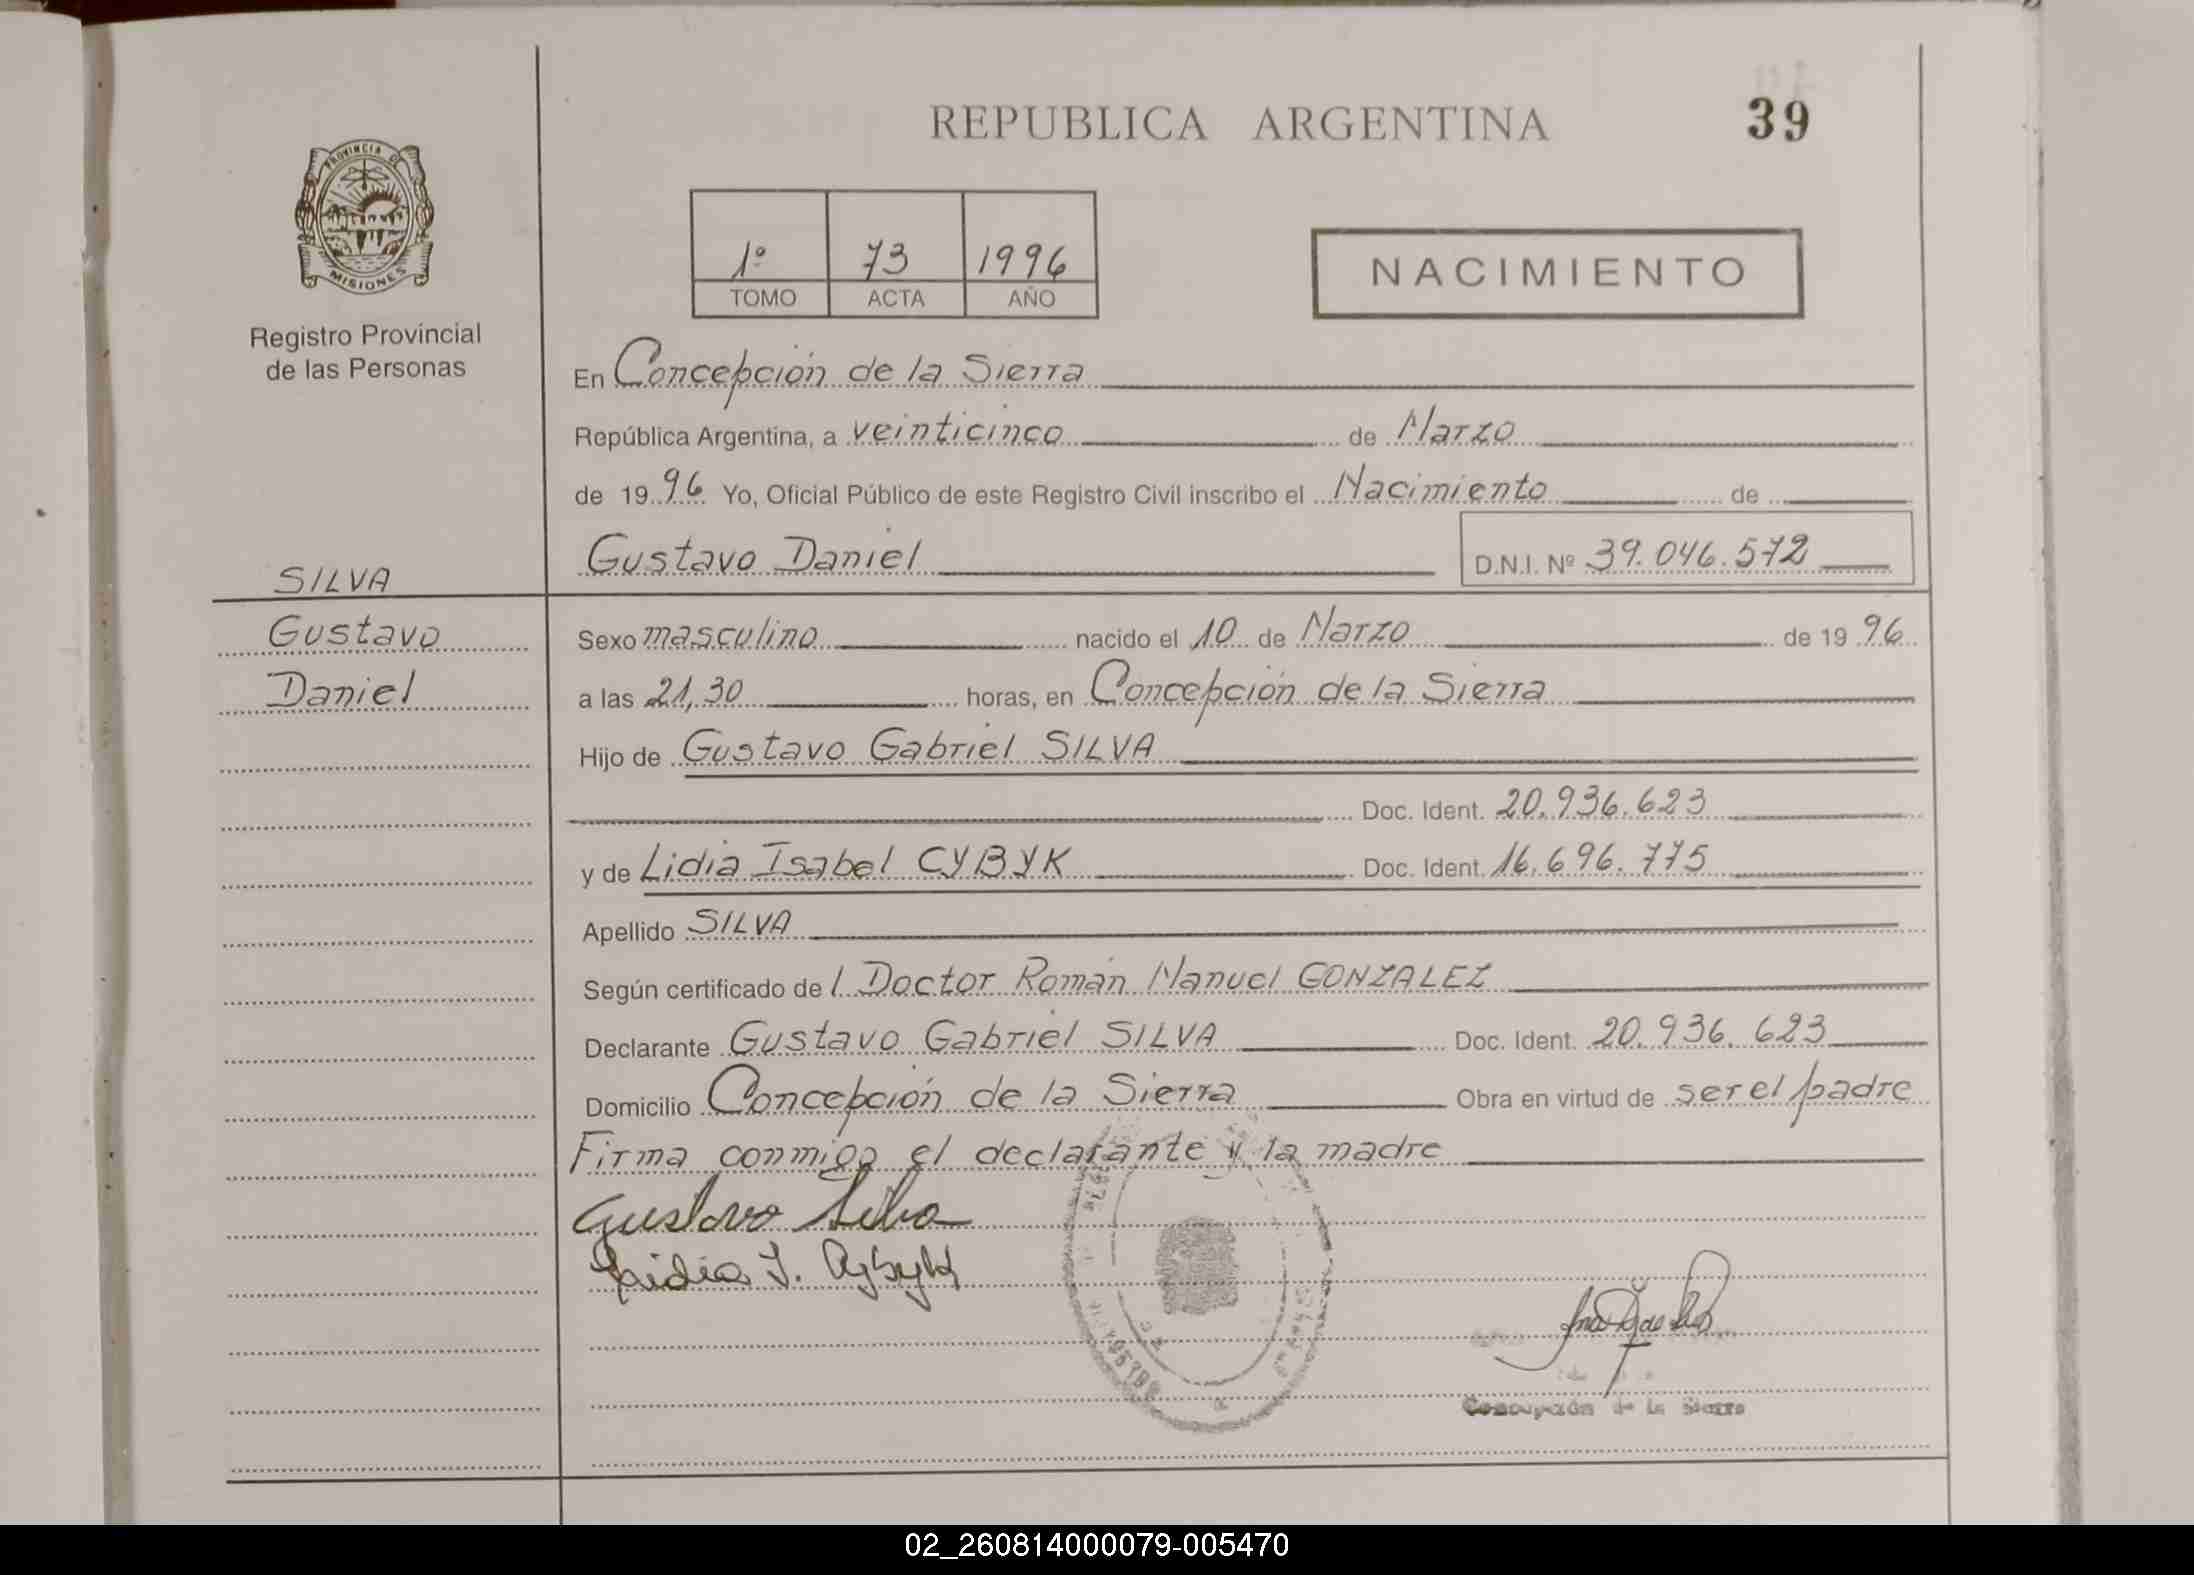 REPUBLICA ARGENTINA
39
PROVINCIA DE
MISIONES
Registro Provincial
de las Personas
1º 73 1996
TOMO ACTA AÑO
NACIMIENTO
En Concepción de la Sierra
República Argentina, a veinticinco de Marzo
de 1996 Yo, Oficial Público de este Registro Civil inscribo el Nacimiento de
Gustavo Daniel D.N.I. Nº 39.046.572
SILVA
Gustavo
Daniel
Sexo masculino nacido el 10 de Marzo de 1996
a las 21,30 horas, en Concepción de la Sierra
Hijo de Gustavo Gabriel SILVA
Doc. Ident. 20.936.623
y de Lidia Isabel CYBYK Doc. Ident. 16.696.775
Apellido SILVA
Según certificado del Doctor Román Manuel GONZALEZ
Declarante Gustavo Gabriel SILVA Doc. Ident. 20.936.623
Domicilio Concepción de la Sierra Obra en virtud de ser el padre
Firma conmigo el declarante y la madre
Gustavo Silva
Lidia I. Cybyk
Concepción de la Sierra
02_260814000079-005470